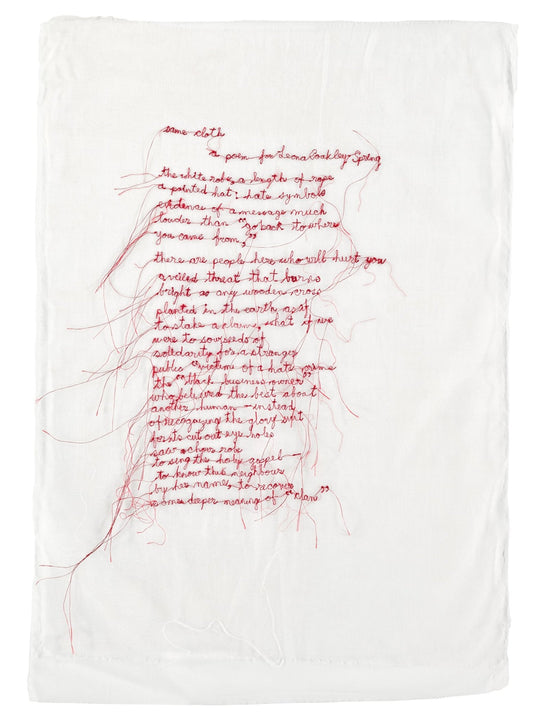 same cloth
a poem for Leona Coakley Spring
the white robe, a length of rope
a pointed hat: hate symbols
evidence of a message much
louder than "go back to where
you came from,"
there are people here who will hurt you
a veiled threat that burns
bright as any wooden cross
planted in the earth, as if
to stake a claim, what if we
were to sow seeds of
solidarity for a stranger
public "victime of a hate crime
the "black business owner"
who believed the best about
another human — instead
of recognizing the glory suit
for its cut out eye holes
saw a choir robe
to sing the holy gospel —
to know this neighbour
by her name, to recover
some deeper meaning of "clan"